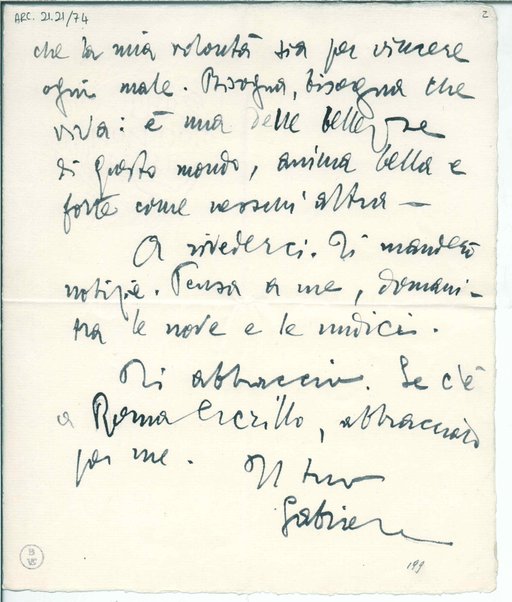 ARC. 21.21/74
2
che la mia volontà sia per vincere
ogni male. Bisogna, bisogna che
viva: è una delle bellezze
di questo mondo, anima bella e
forte come nessun'altra —
A rivederci. Ti manderò
notizie. Pensa a me, domani –
tra le nove e le undici.
Ti abbraccio. Se c'è
a Roma Cirillo, abbraccialo
per me.
Il tuo
Gabriele
199